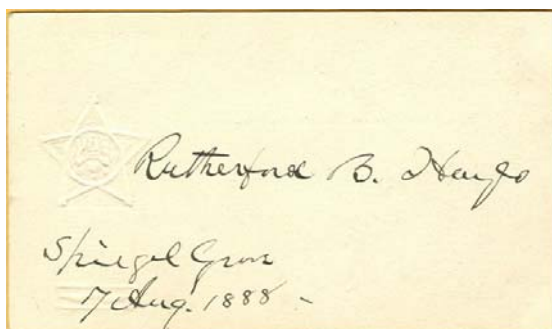 Rutherford B. Hayes
Spiegel Grove
7 Aug. 1888 -